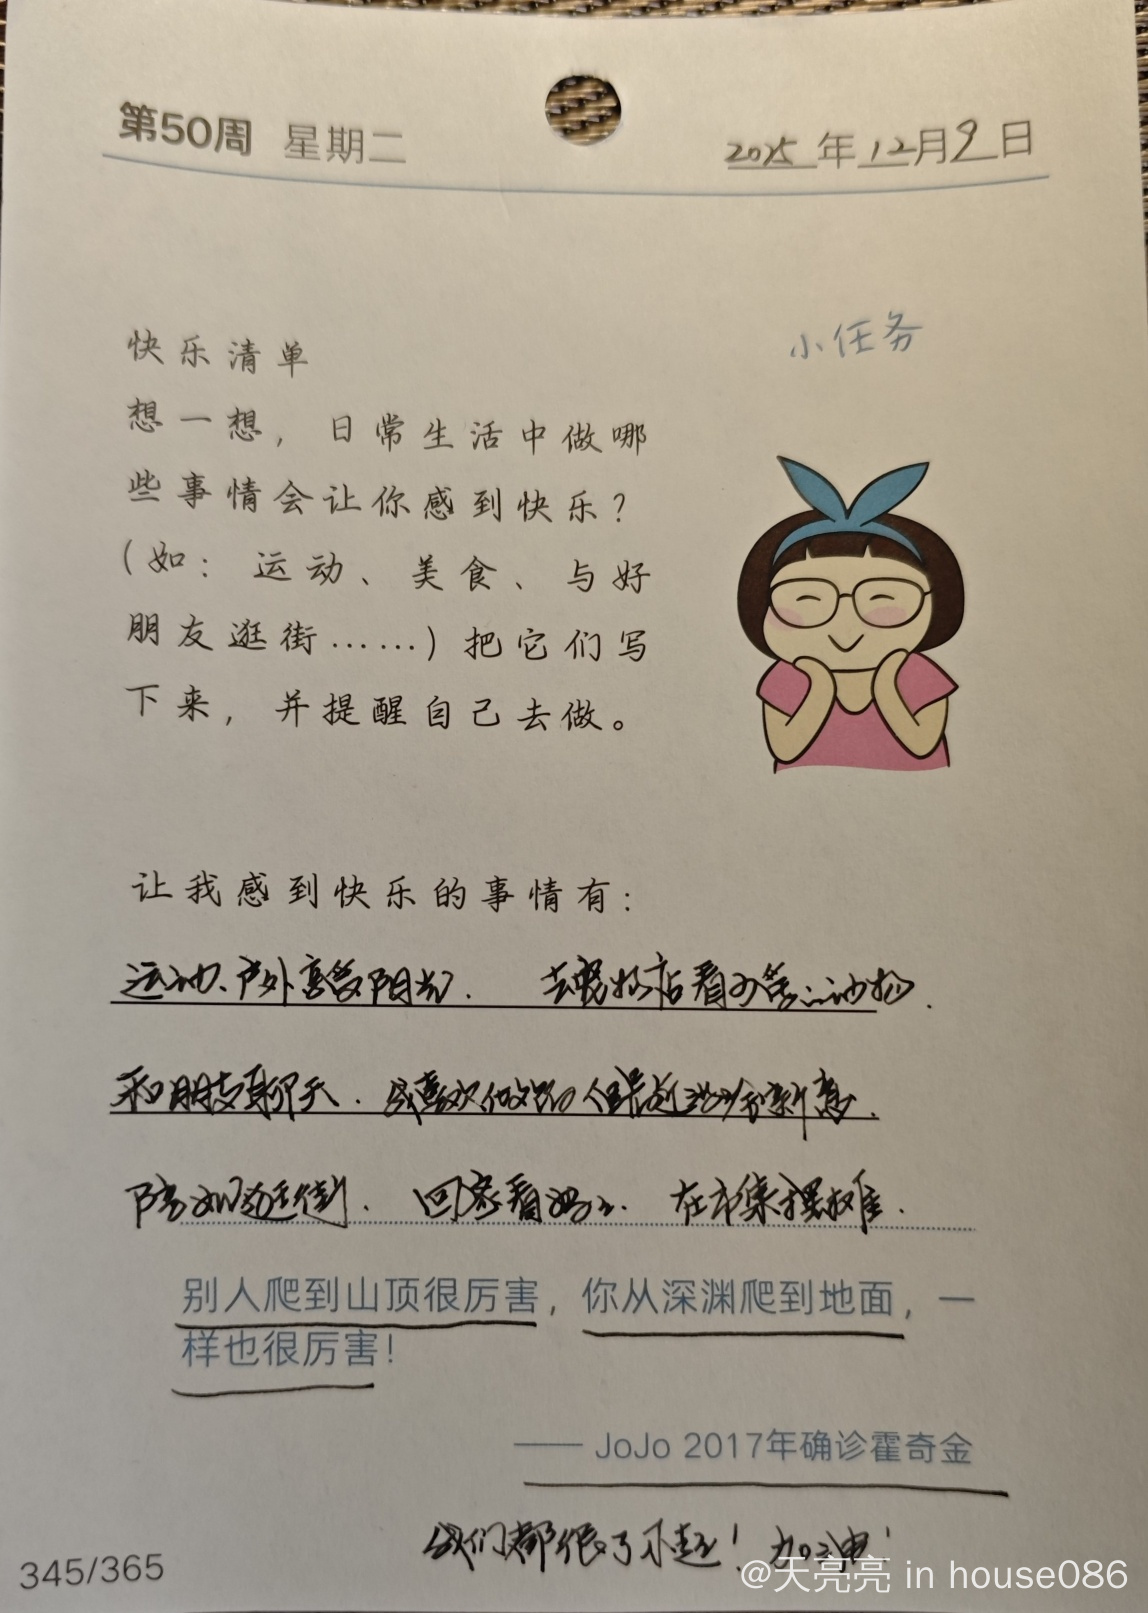 第50周 星期二 2025年12月9日
小任务
快乐清单
想一想，日常生活中做哪
些事情会让你感到快乐？
（如：运动、美食、与好
朋友逛街……）把它们写
下来，并提醒自己去做。
让我感到快乐的事情有：
运动、户外享受阳光. 去
和朋友聊天. 我喜欢做
陪 逛街. 回家看妈妈. 在市集摆摊.
别人爬到山顶很厉害，你从深渊爬到地面，一
样也很厉害！
—— JoJo 2017年确诊霍奇金
我们都很了不起！加油！
345/365
@天亮亮 in house086